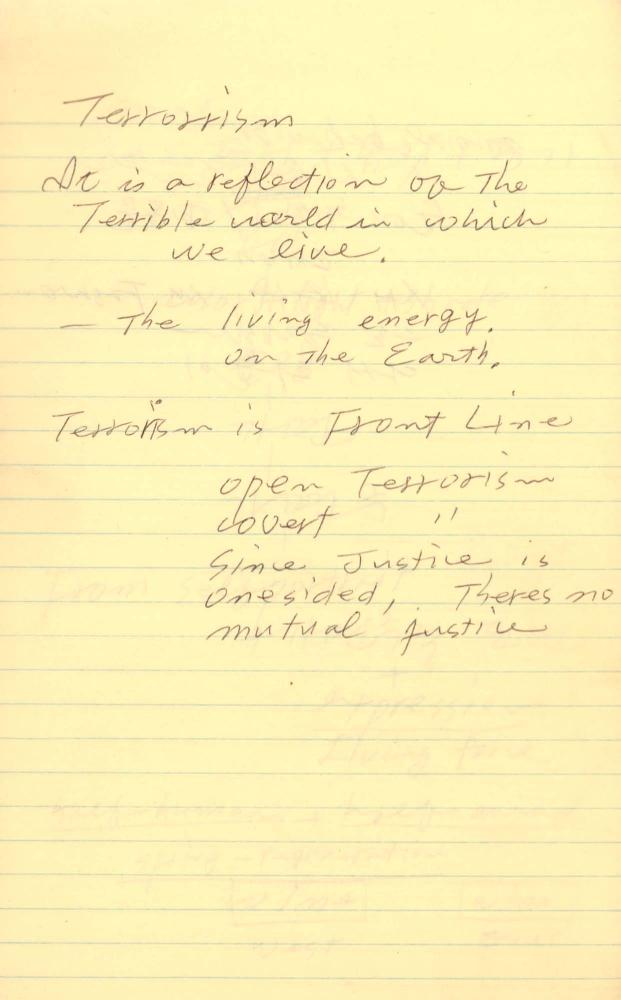 Terrorrism
It is a reflection of The
Terrible world in which
we live.
— The living energy.
on The Earth.
Terrorism is Front Line
open Terrorism
covert "
Since Justice is
onesided, Theres no
mutual justice